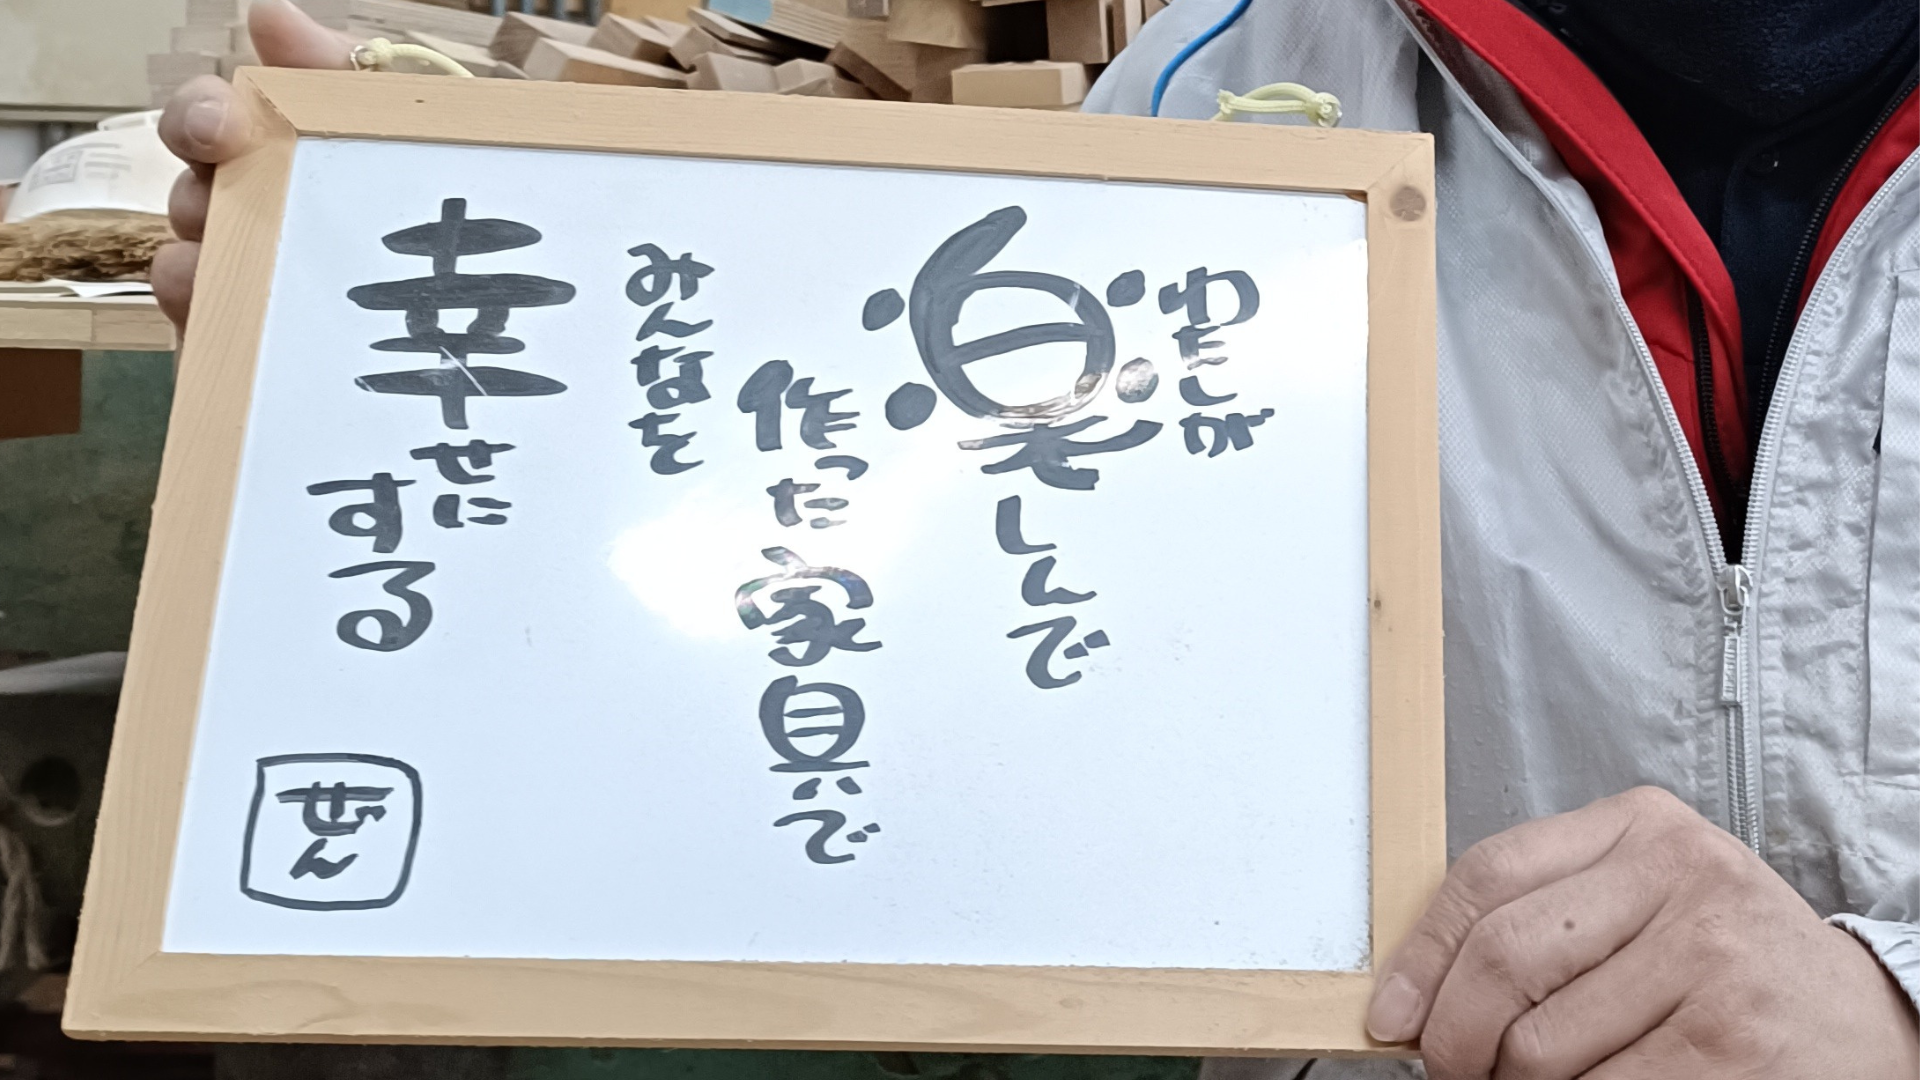 わたしが
楽しんで
作った家具で
みんなを
幸せに
する
ぜん